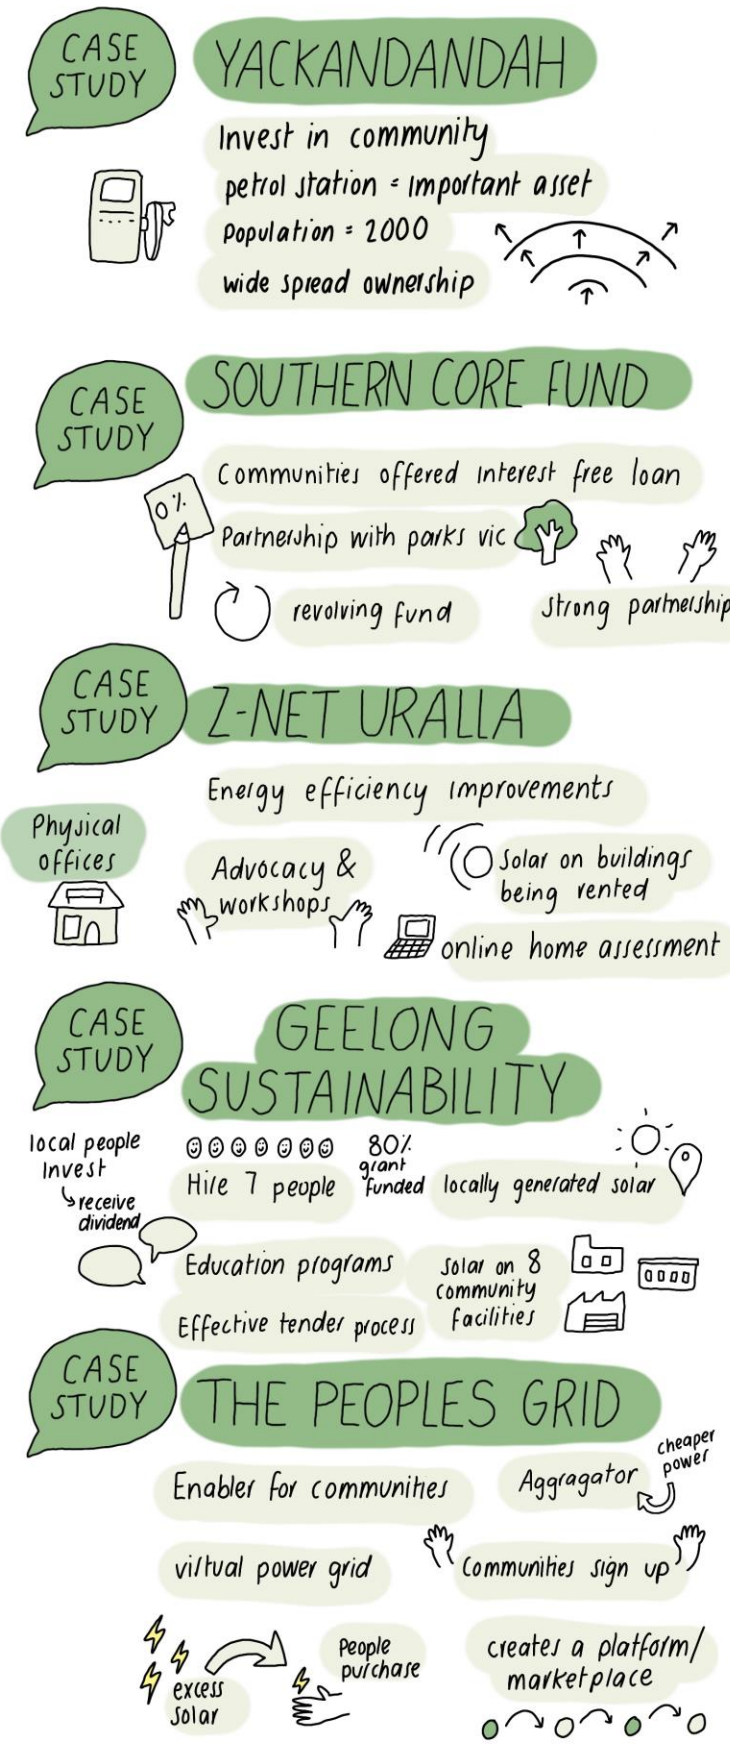 CASE
STUDY
YACKANDANDAH
Invest in community
petrol station = Important asset
Population = 2000
wide spread ownership
CASE
STUDY
SOUTHERN CORE FUND
Communities offered interest free loan
0%
Partnership with parks vic
revolving fund
strong partnership
CASE
STUDY
Z-NET URALLA
Energy efficiency improvements
Physical
offices
Advocacy &
workshops
Solar on buildings
being rented
online home assessment
CASE
STUDY
GEELONG
SUSTAINABILITY
local people
Invest
receive
dividend
Hire 7 people
80%
grant
funded
locally generated solar
Education programs
Solar on 8
community
facilities
Effective tender process
CASE
STUDY
THE PEOPLES GRID
Enabler for communities
Aggragator
cheaper
power
virtual power grid
Communities sign up
excess
solar
People
purchase
creates a platform/
marketplace